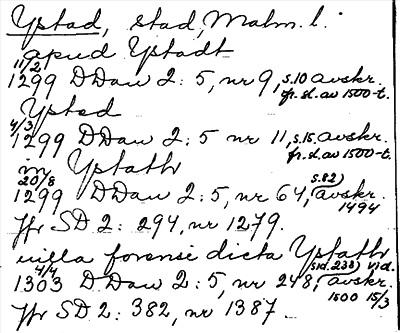 Ystad, stad, Malm. l.
apud Ystadt
11/2
1299 DDan 2:5, nr 9, s.10 avskr.
fr. sl. av 1500-t.
Ysted
4/3
1299 DDan 2:5 nr 11, s.15. avskr.
fr. sl. av 1500-t.
in Ystathr
20/8 s.82)
1299 DDan 2:5, nr 64, avskr.
1494
Jfr SD 2: 294, nr 1279.
uilla forensi dicta Ystathr
4/4 sid. 238) vid.
1303 DDan 2:5, nr 248, avskr.
1500 15/3
Jfr SD 2: 382, nr 1387